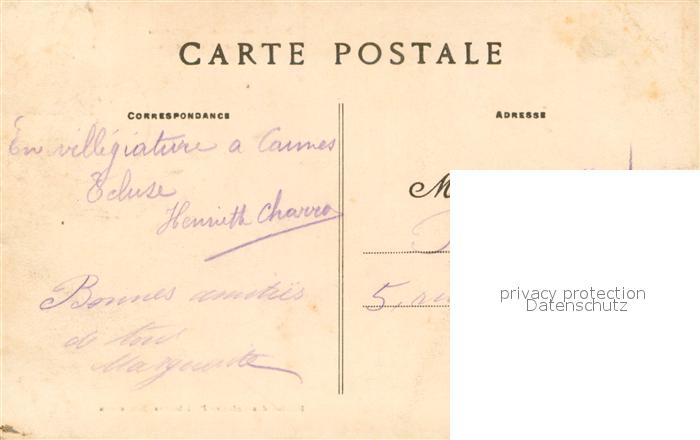 CARTE POSTALE
CORRESPONDANCE
ADRESSE
En villégiature a Cannes
Ecluse
Henriette Charro
Bonnes amitiés
de tous
Marguerite
M
5, rue
privacy protection
Datenschutz